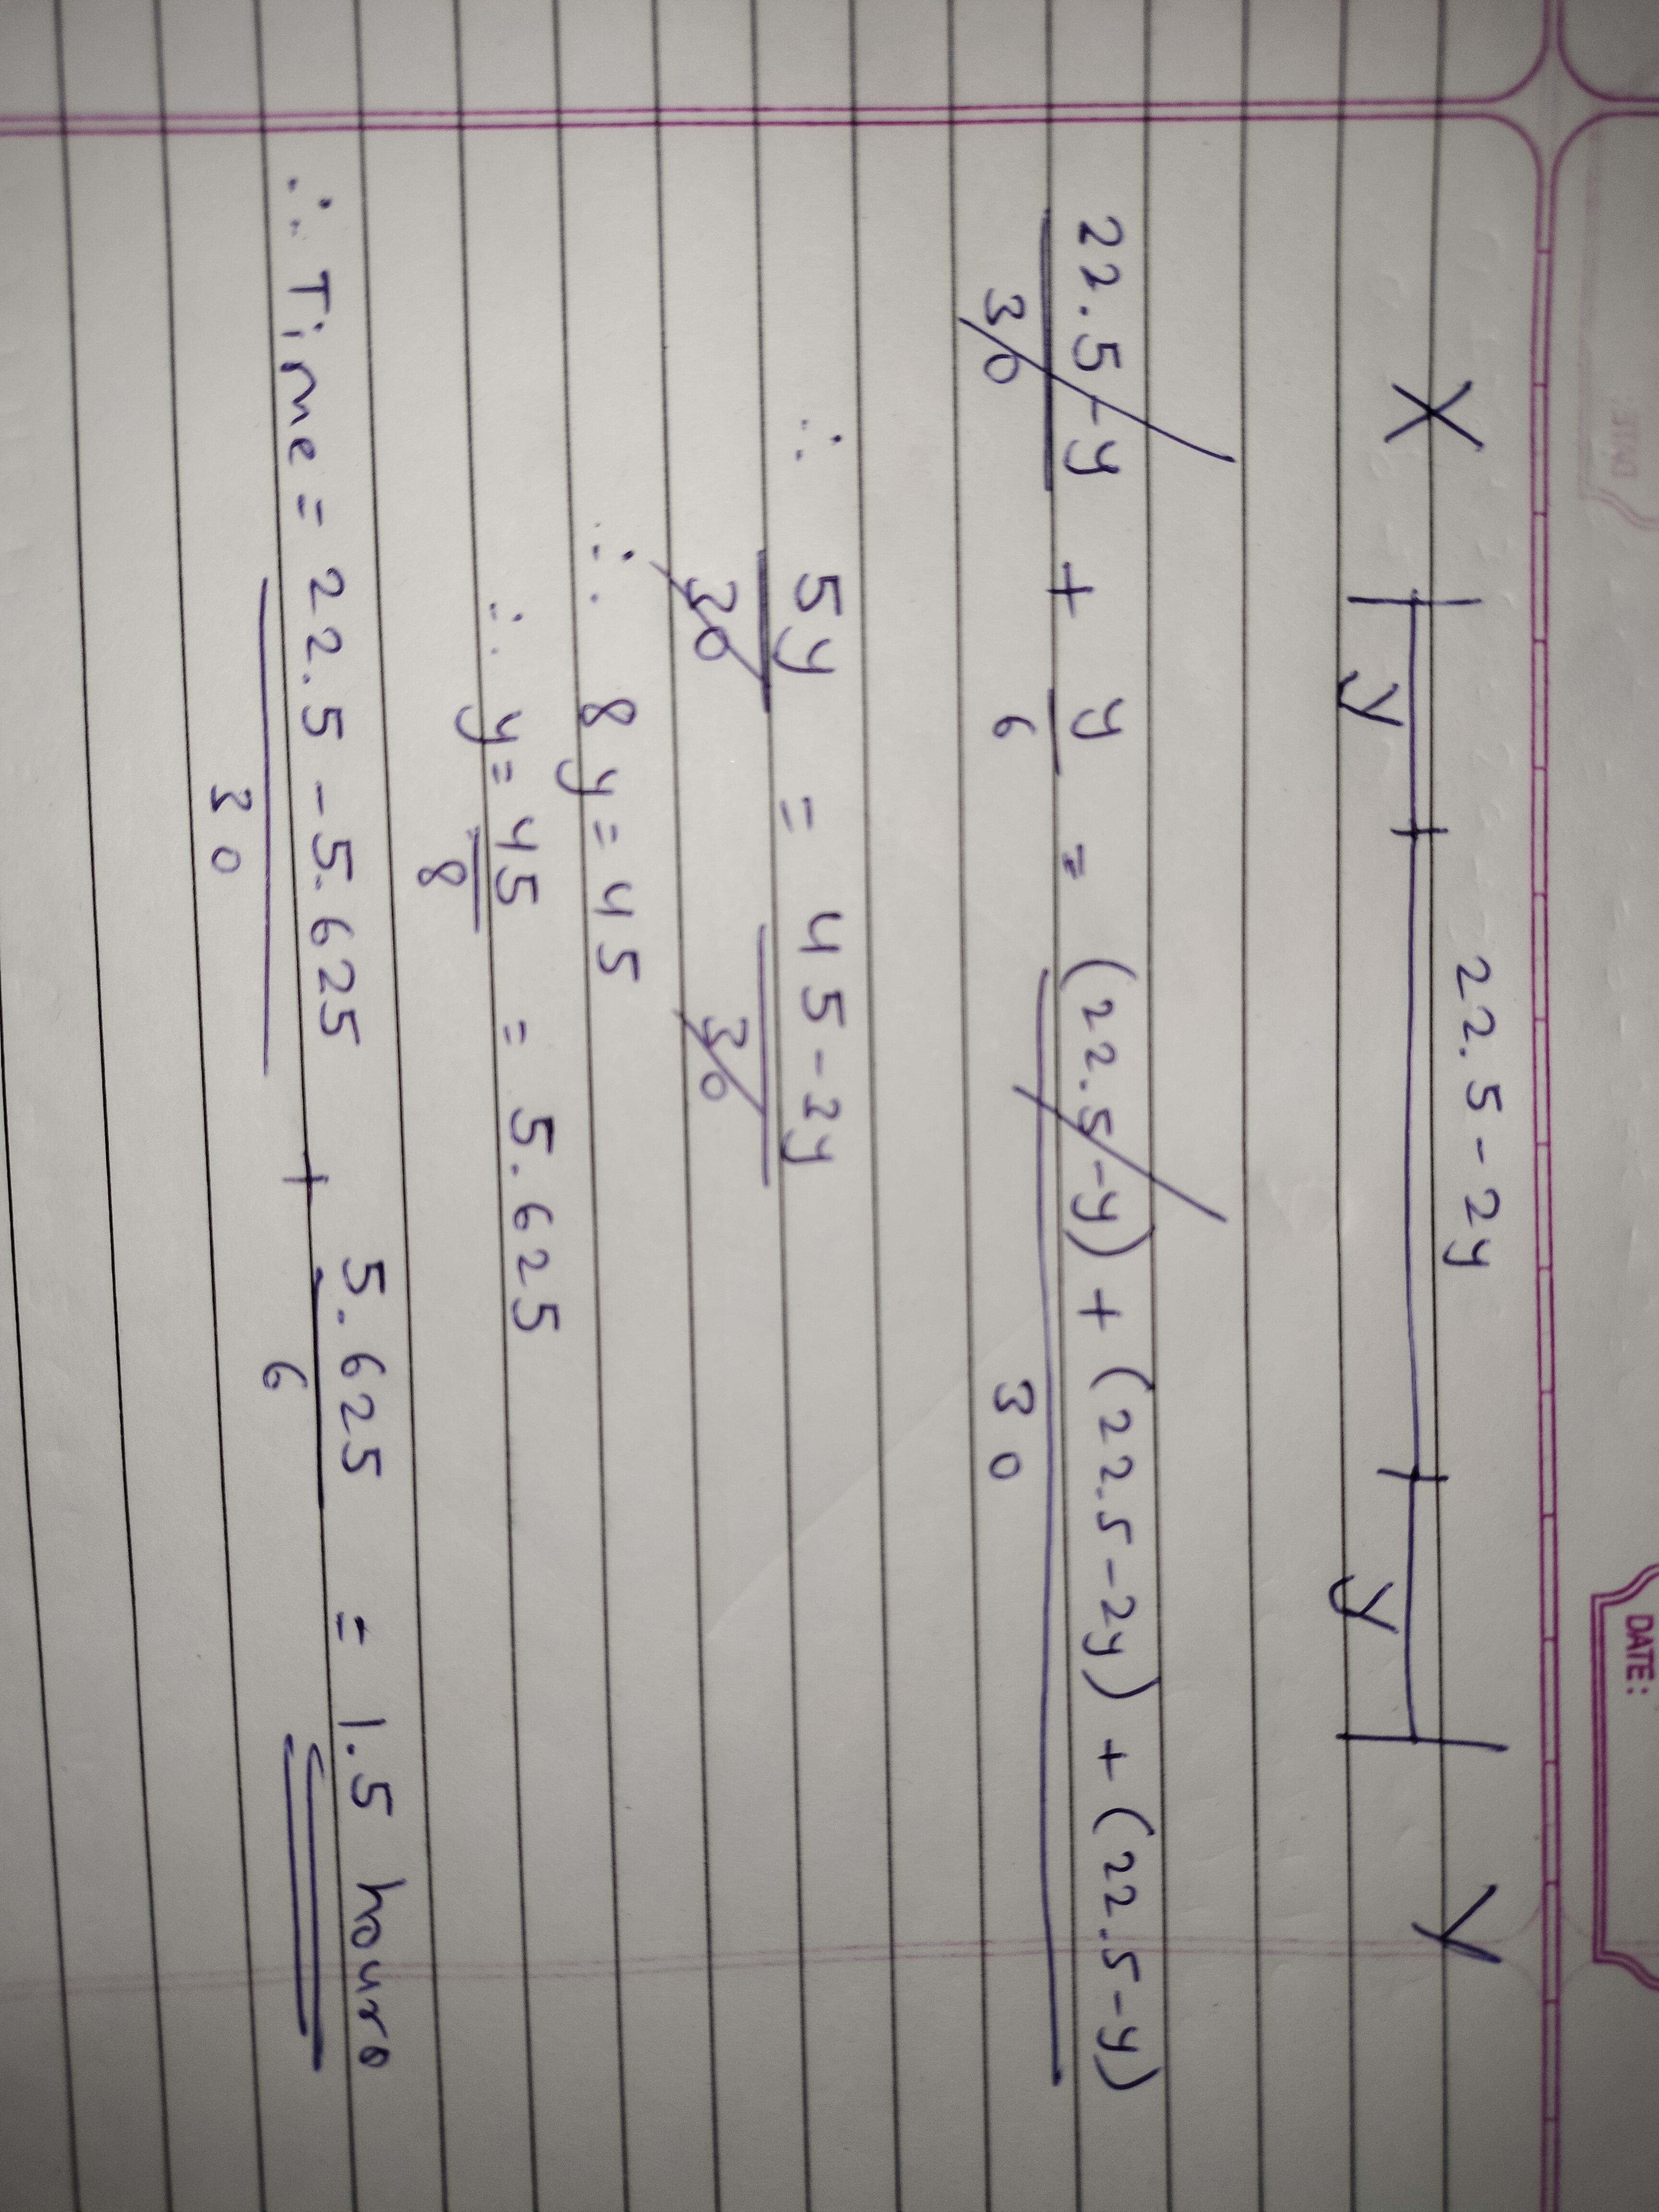 DATE:
X Y
22.5-2y
y y
22.5-y/30 + y/6 = (22.5-y)+(22.5-2y)+(22.5-y)/30
∴ 5y/30 = 45-2y/30
∴ 8y=45
∴ y=45/8 = 5.625
∴ Time = 22.5-5.625/30 + 5.625/6 = 1.5 hours